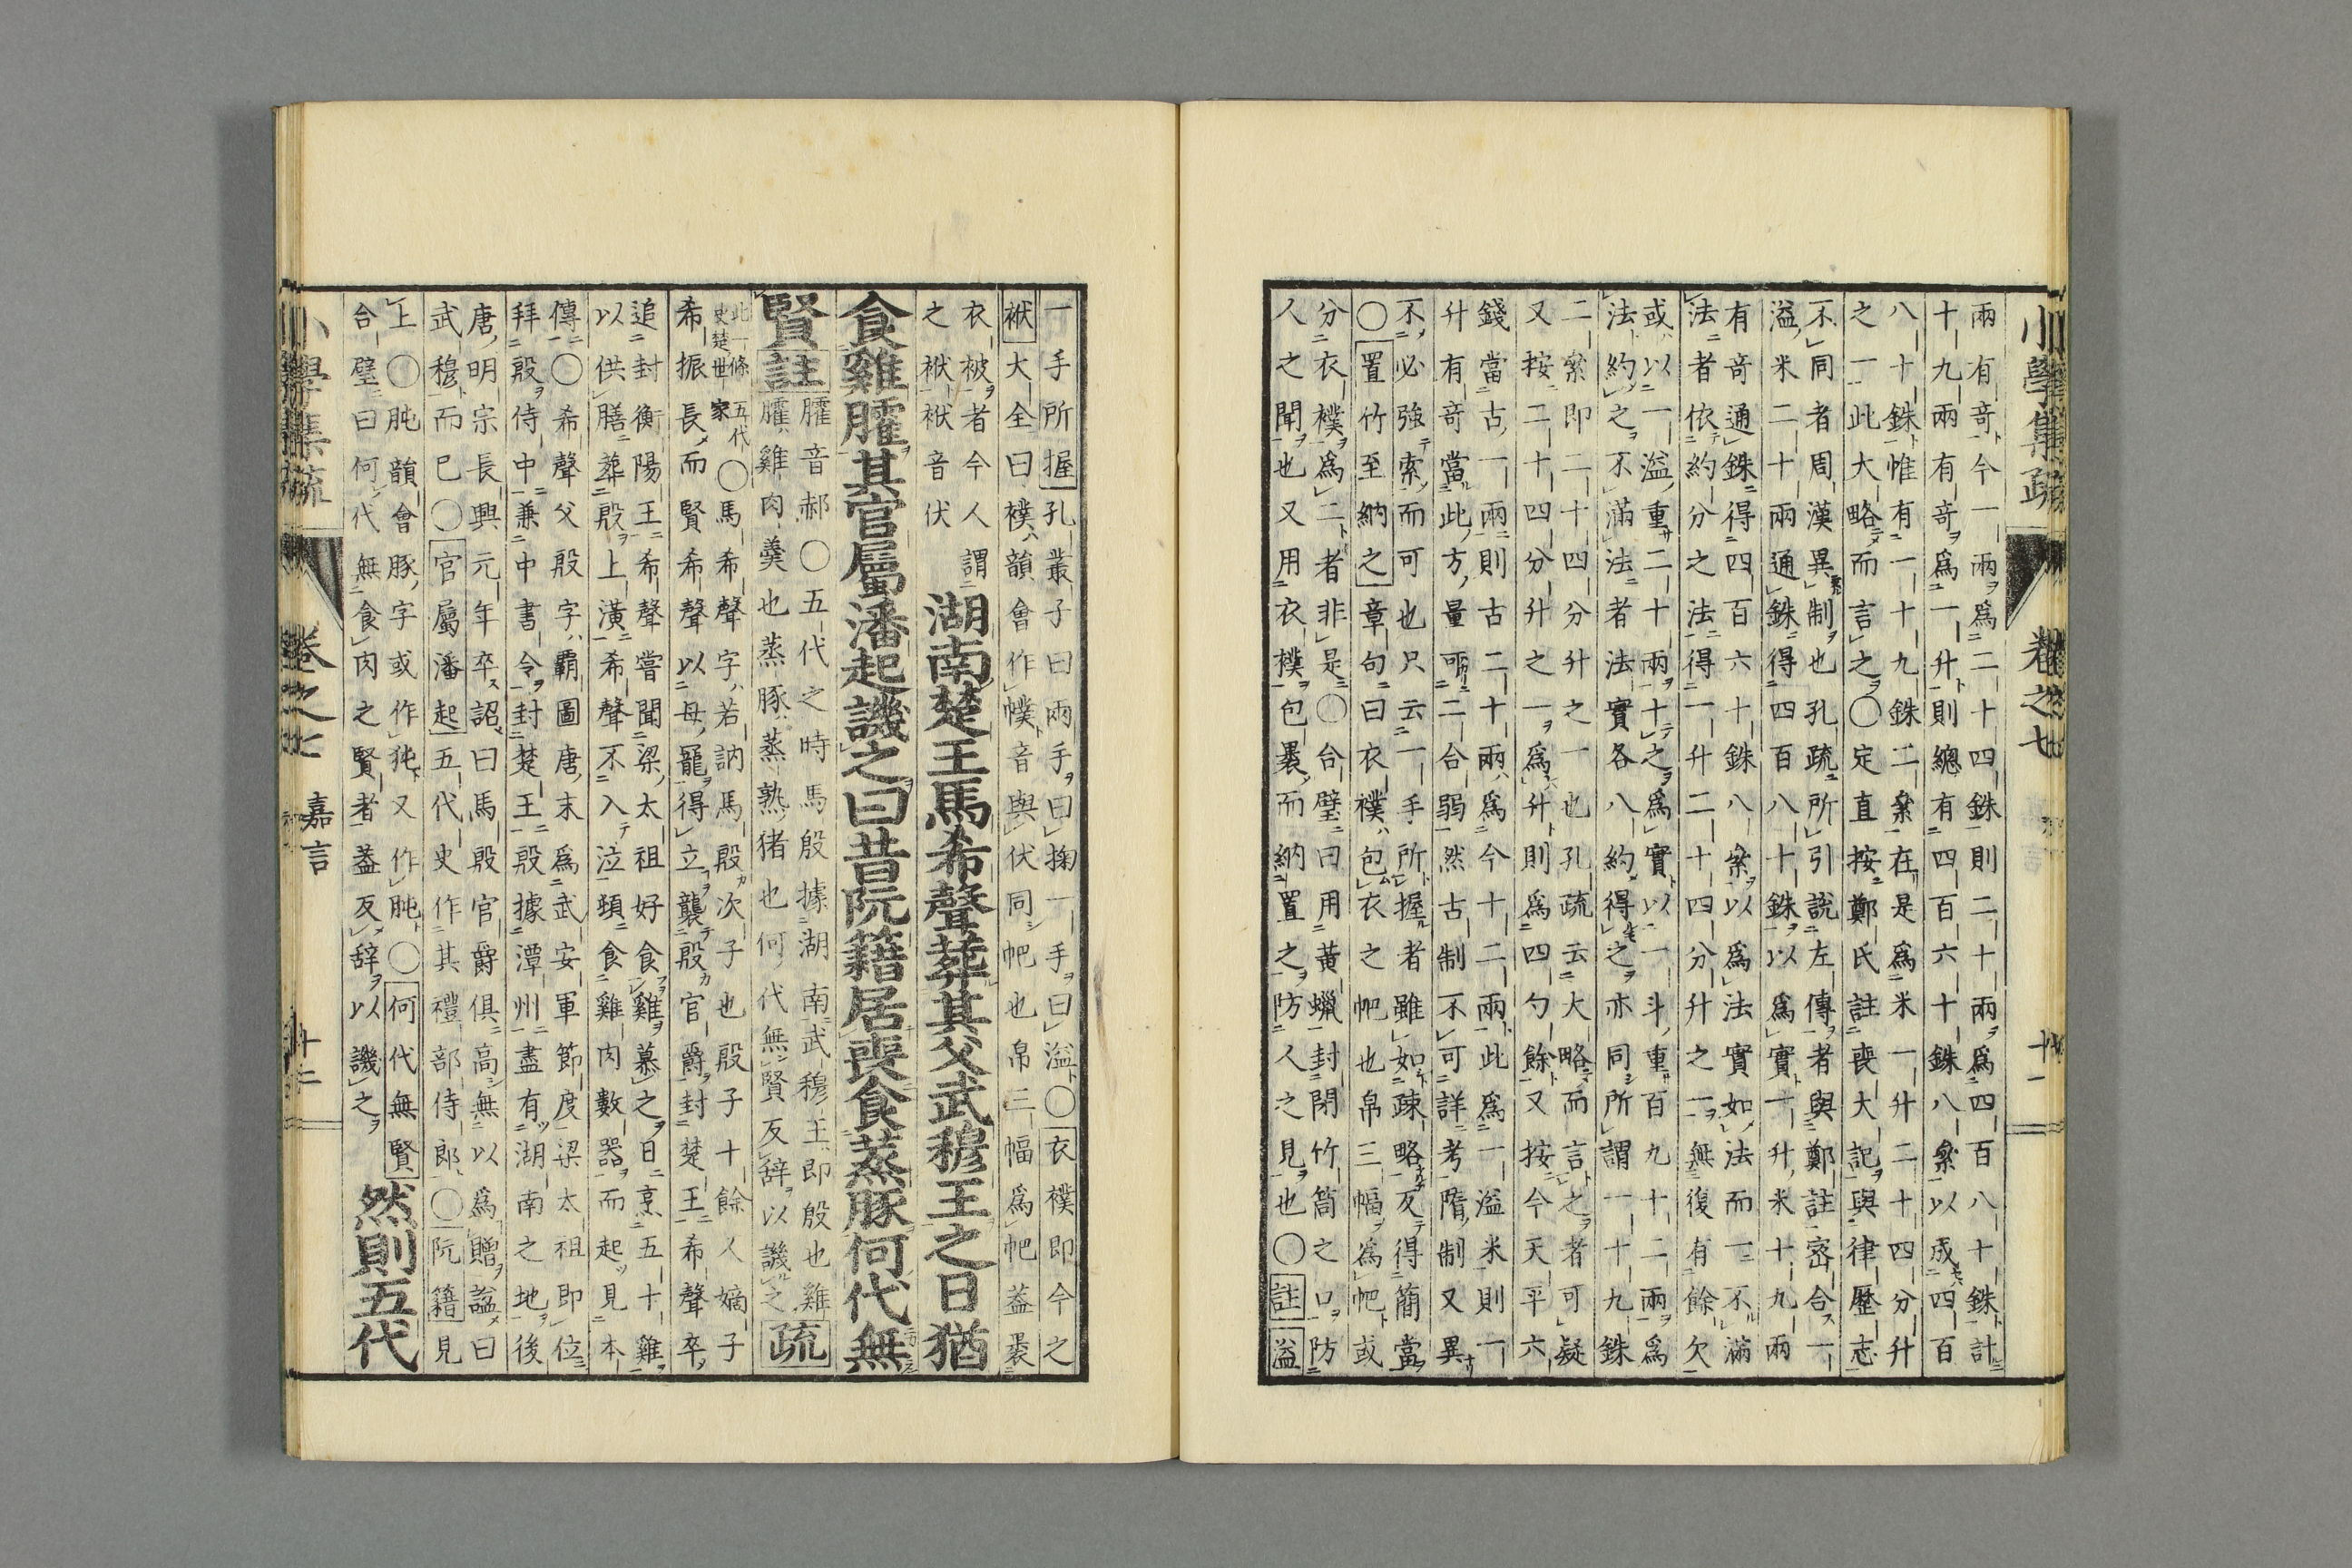 小學集疏
卷之七
十一
兩有竒今一兩爲二十四銖則二十兩爲四百八十銖計
十九兩有竒爲一升則總有四百六十銖八絫以成四百
八十銖惟有一十九銖二絫在是爲米一升二十四分升
之一此大略而言之〇定直按鄭氏註喪大記與律歷志
不同者周漢異制也孔疏所引說左傳者與鄭註宻合一
溢米二十兩通銖得四百八十銖以爲實一升米十九兩
有竒通銖得四百六十銖八絫以爲法實如法而一不滿
法者依約分之法得一升二十四分升之一無復有餘欠
或以一溢重二十兩十之爲實以一斗重百九十二兩爲
法約之不滿法者法實各八約得之亦同所謂一十九銖
二絫即二十四分升之一也孔疏云大略而言之者可疑
又按二十四分升之一爲升則爲四勺餘又按今天平六
錢當古一兩則古二十兩爲今十二兩此爲一溢米則一
升有竒當此方量可二合弱然古制不可詳考隋制又異
不必強索而可也只云一手所握者雖如疎略反得簡當
〇置竹至納之章句曰衣襆包衣之帊也帛三幅爲帊或
分衣襆爲二者非是〇台璧曰用黄蠟封閉竹筒之口防
人之聞也又用衣樸包裹而納置之防人之見也〇註溢
一手所握孔叢子曰兩手曰掬一手曰溢〇衣襆即今之
袱大全曰襆韻會作幞音與伏同帊也帛三幅爲帊葢裹
衣被者今人謂
之袱袱音伏
湖南楚王馬希聲葬其父武穆王之日猶
食雞臛其官屬潘起譏之曰昔阮籍居喪食蒸豚何代無
賢
註
臛音郝〇五代之時馬殷據湖南武穆王即殷也雞
臛雞肉羹也蒸豚蒸熟猪也何代無賢反辭以譏之
疏
此一條五代
史楚世家
〇馬希聲字若訥馬殷次子也殷子十餘人嫡子
希振長而賢希聲以母寵得立襲殷官爵封楚王希聲卒
追封衡陽王希聲嘗聞梁太祖好食雞慕之日烹五十雞
以供膳葬殷上潢希聲不入泣頭食雞肉數器而起見本
傳〇希聲父殷字霸圖唐末爲武安軍節度梁太祖即位
拜殷侍中兼中書令封楚王殷據潭州盡有湖南之地後
唐明宗長興元年卒詔曰馬殷官爵俱高無以爲贈謚曰
武穆而已〇官屬潘起五代史作其禮部侍郎〇阮籍見
上〇肫韻會豚字或作㹠又作肫〇何代無賢
台璧曰何代無食肉之賢者葢反辭以譏之
然則五代
小學集疏
卷之七
嘉言
十二